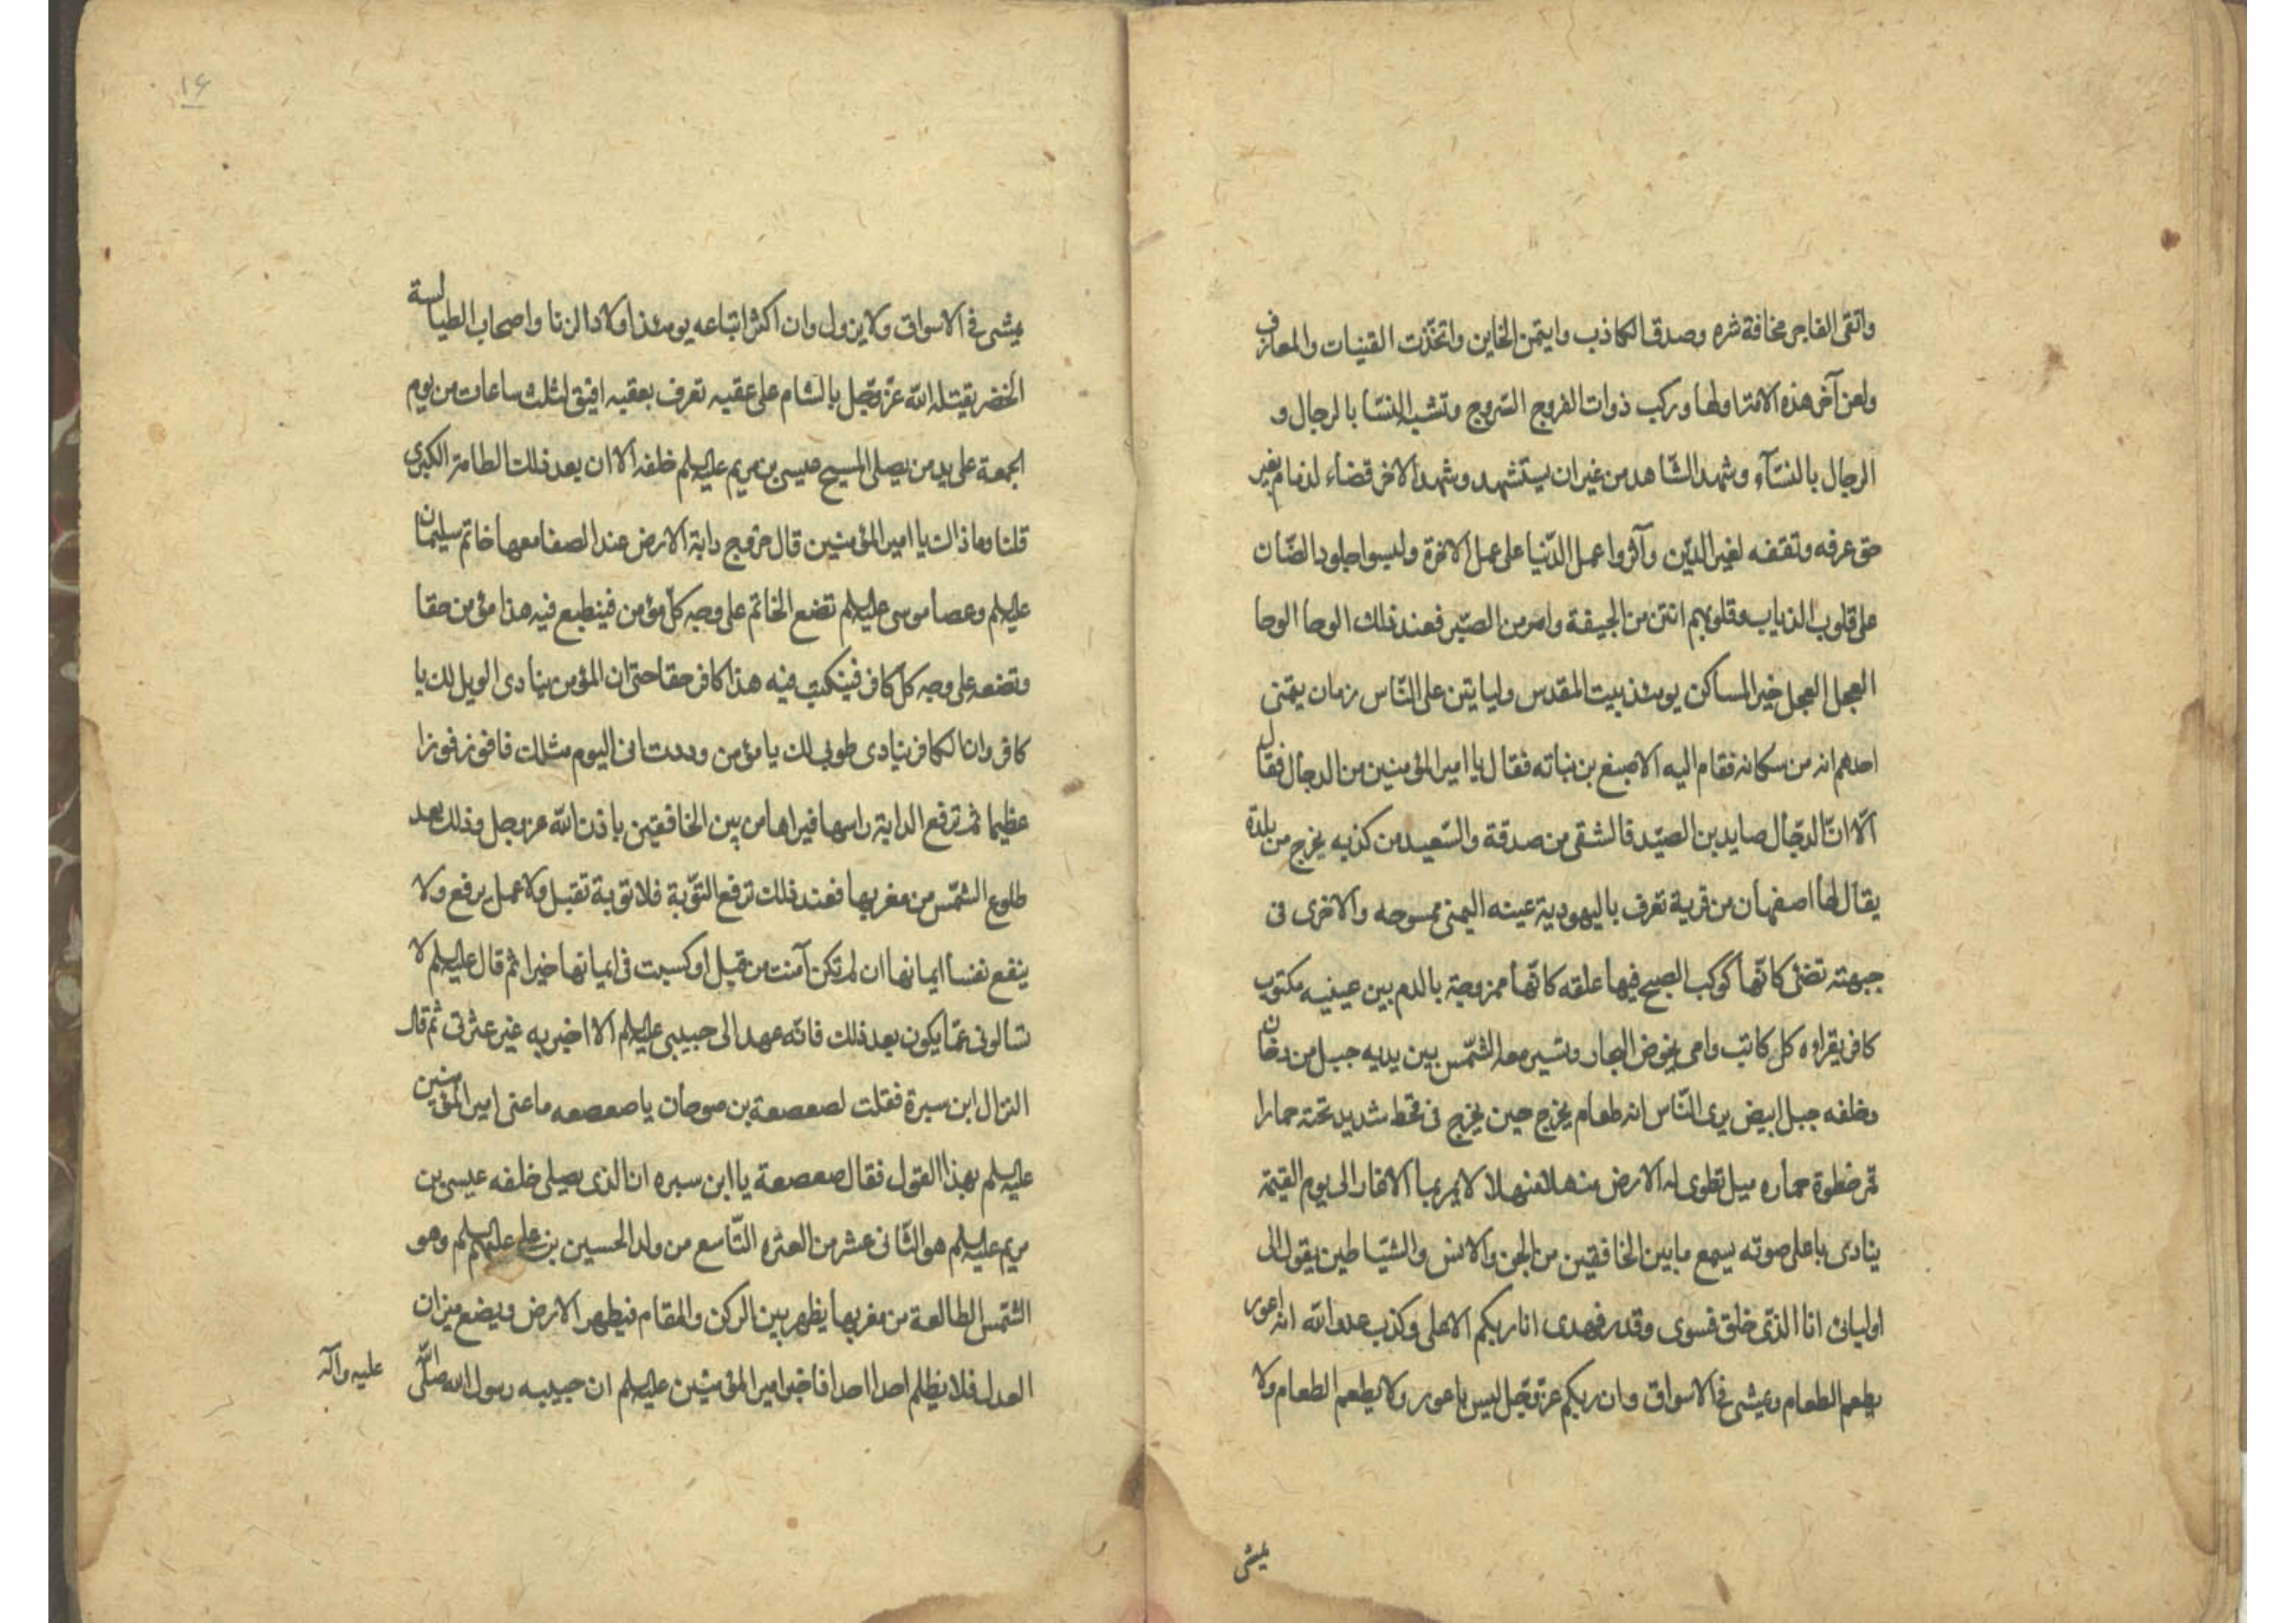 واتقى الفاجر مخافة شره وصدق الكاذب وايتمن الخاين واتخذت القينات والمعازف
ولعن آخر هذه الامة اولها وركب ذوات الفروج السروج وتشبه النسا بالرجال و
الرجال بالنسآء وشهد الشاهد من غير ان يستشهد وشهد الاخر قضاء لذمام بغير
حق عرفه وتفقه لغير الدّين وآثروا عمل الدّنيا على عمل الاخرة ولبسوا جلود الضّان
على قلوب الذياب وقلوبهم انتن من الجيفة وامر من الصبر فعند ذلك الوحا الوحا
العجل العجل خير المساكن يومئذ بيت المقدس ولياتين على النّاس زمان يتمنى
احدهم انه من سكانه فقام اليه الاصبغ بن نباته فقال يا امير المؤمنين من الدجال فقال
آلا انّ الدجّال صايد بن الصيد فالشقى من صدقة والسّعيد من كذبه يخرج من بلدة
يقال لها اصفهان من قرية تعرف باليهودية عينه اليمنى ممسوحه والاخرى فى
جبهته تضئ كانّها كوكب الصبح فيها علقه كانّها ممزوجة بالدم بين عينيه مكتوب
كافر يقراوه كل كاتب وامى يخوض البحار وتسير معه الشّمس بين يديه جبل من دخان
وخلفه جبل ابيض يرى النّاس انه طعام يخرج حين يخرج فى قحط شديد تحته حمارا
قمر خطوة حماره ميل تطوى له الارض منهلا منهلا لا يمر بما الا غار الى يوم القيمة
ينادى باعلى صوته يسمع ما بين الخافقين من الجن والانس والشيّاطين يقول الى
اوليائى انا الذّى خلق فسوى وقدر فهدى انا ربكم الاعلى وكذب عدو الله انه اعور
يطعم الطعام ويمشى فى الاسواق وان ربكم عزّ وجّل ليس باعور ولا يطعم الطعام ولا
يمشى
۱۶
يمشى فى الاسواق ولا يزول وان اكثر اتباعه يومئذ اولاد الزنا واصحاب الطيالسة
الخضر يقتله الله عزّ وجّل بالشام على عقبه تعرف بعقبه افيق لثلث ساعات من يوم
الجمعة على يد من يصلى المسيح عيسى بن مريم عليه السلم خلفه آلا ان بعد ذلك الطامة الكبرى
قلنا وما ذاك يا امير المؤمنين قال خروج دابة الارض عند الصفا معها خاتم سليمان
عليه السلم وعصا موسى عليه السلم تضع الخاتم على وجه كلّ مؤمن فينطبع فيه هذا مؤمن حقا
وتضعه على وجه كل كافر فينكتب فيه هذا كافر حقا حتى ان المؤمن ينادى الويل لك يا
كافر وان الكافر ينادى طوبى لك يا مؤمن وددت انى اليوم مثلك فافوز فوزا
عظيما ثم ترفع الدابة راسها فيراها من بين الخافقين باذن الله عز وجل وذلك بعد
طلوع الشمّس من مغربها فعند ذلك ترفع التوّبة فلا توبة تقبل ولا عمل يرفع ولا
ينفع نفسا ايمانها ان لم تكن آمنت من قبل او كسبت فى ايمانها خيرا ثم قال عليه السلم لا
تسالونى عمّا يكون بعد ذلك فانّه عهد الى حبيبى عليه السلم الا اخبر به غير عترتى ثم قال
النزال ابن سبرة فقلت لصعصعة بن صوحان يا صعصعه ما عنى امير المؤمنين
عليه السلم بهذا القول فقال صعصعة يا ابن سبره ان الذى يصلى خلفه عيسى بن
مريم عليه السلم هو الثّانى عشر من العتره التّاسع من ولد الحسين بن على عليهم السلم وهو
الشّمس الطالعة من مغربها يظهر بين الركن والمقام فيطهر الارض ويضع ميزان
العدل فلا يظلم احد احدا فاخبر امير المؤمنين عليه السلم ان حبيبه رسول الله صلّى الله عليه وآله